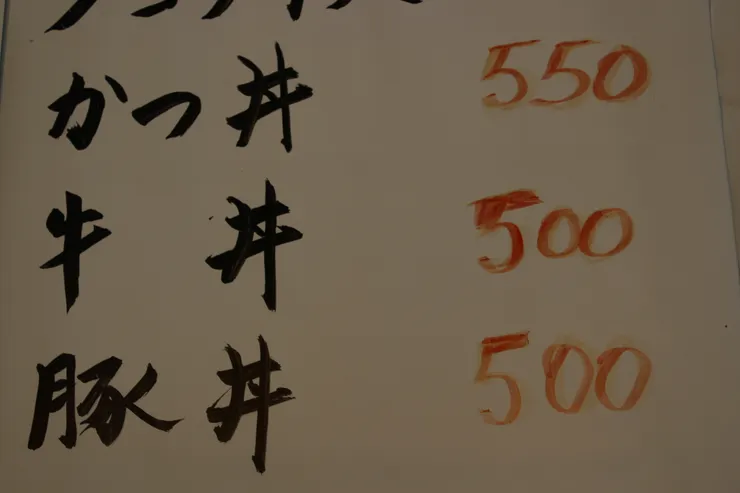 かつ丼 550
牛丼 500
豚丼 500